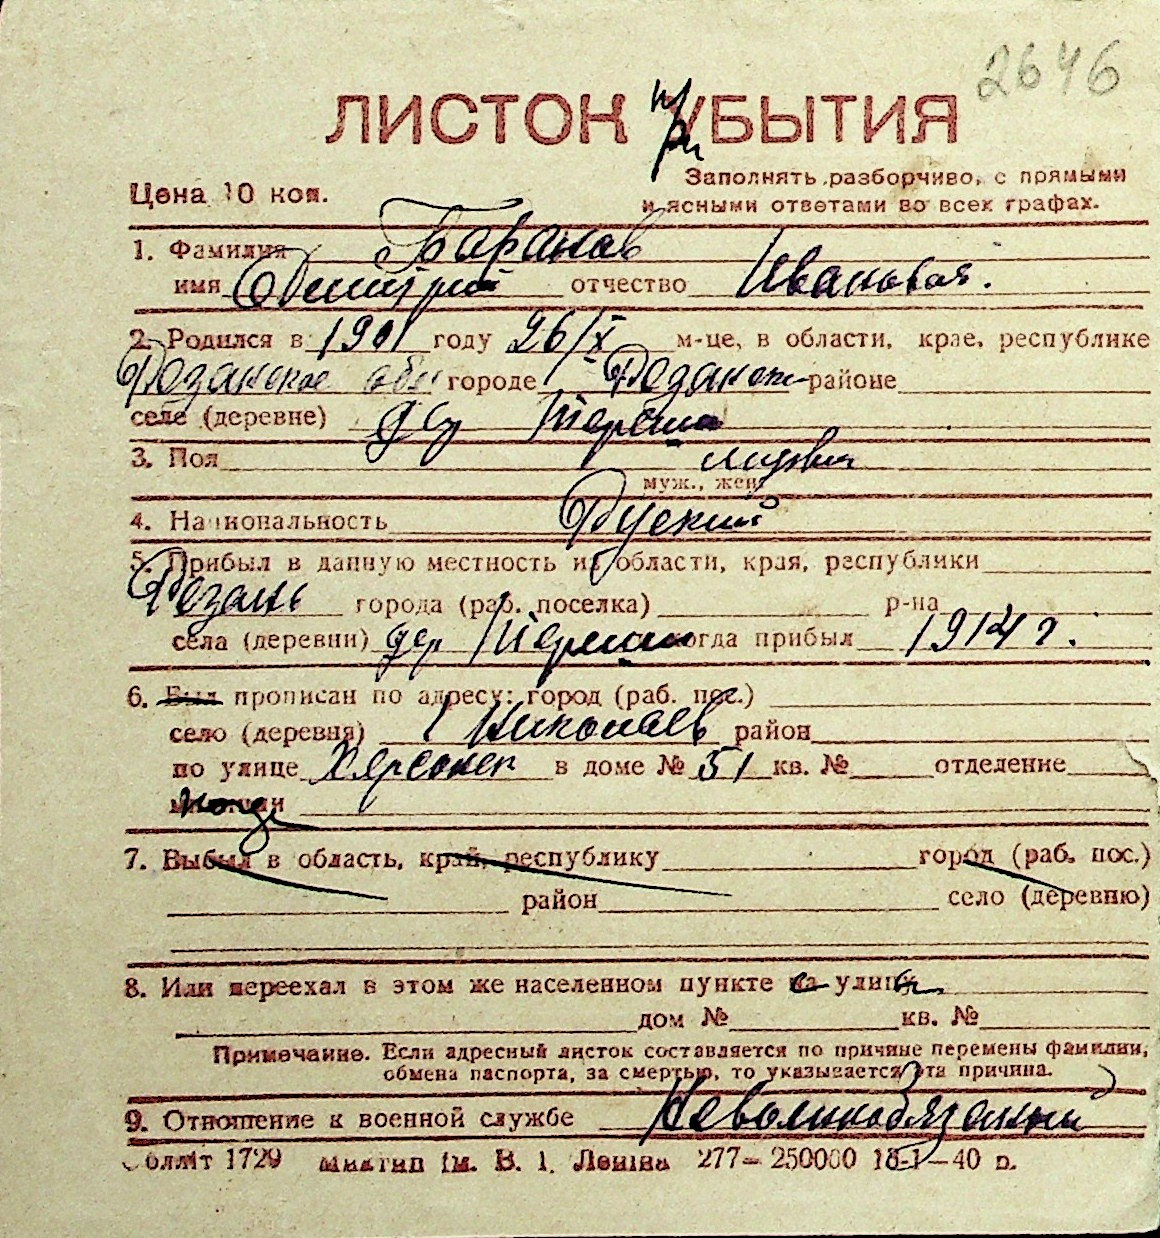 2646
ЛИСТОК УБЫТИЯ
при
Цена 10 коп.
Заполнять разборчиво, с прямыми
и ясными ответами во всех графах.
1. Фамилия Баранов
имя Дмитрий отчество Иванович.
2. Родился в 1901 году 26/X м-це, в области, крае, республике
Резанское обл городе Резанск районе
селе (деревне) дер
3. Пол мужч
муж., жен.
4. Национальность Руский
5. Прибыл в данную местность из области, края, республики
Резань города (раб. поселка) р-на
села (деревни) дер когда прибыл 1914 г.
6. Был прописан по адресу: город (раб. пос.)
село (деревня) г Николаев район
по улице Херсонск в доме № 51 кв. № отделение
милиции
7. Выбыл в область, край, республику город (раб. пос.)
район село (деревню)
8. Или переехал в этом же населенном пункте на улицу
дом № кв. №
Примечание. Если адресный листок составляется по причине перемены фамилии,
обмена паспорта, за смертью, то указывается эта причина.
9. Отношение к военной службе Невоинобязаный
Обллiт 1729 Миктип iм. В. I. Ленiна 277—250000 18-I—40 р.